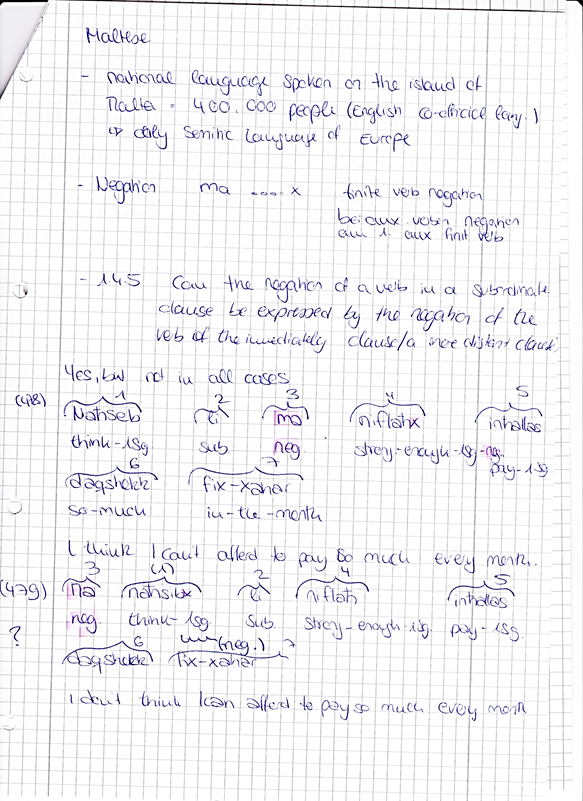 Maltese
- national language spoken on the island of
Malta - 400.000 people (English co-official lang.)
↳ only Semitic language of Europe
- Negation ma .... x finite verb negation
bei aux. verben negation
am 1. aux finit verb
- 1.4.5 Can the negation of a verb in a subordinate
clause be expressed by the negation of the
verb of the immediately clause/a more distant clause?
Yes, but not in all cases
1 2 3 4 5
(478) Naħseb li ma niflaħx inħallas
think-1sg sub neg. strong-enough-1sg-neg. pay-1sg
6 7
daqshekk fix-xahar
so-much in-the-month
I think I can't afford to pay so much every month.
3 (1) 2 4 5
(479) ma naħsibx li niflaħ inħallas
neg. think-1sg. sub. strong-enough-1sg. pay-1sg.
? 6 (neg.) 7
daqshekk fix-xahar
I don't think I can afford to pay so much every month